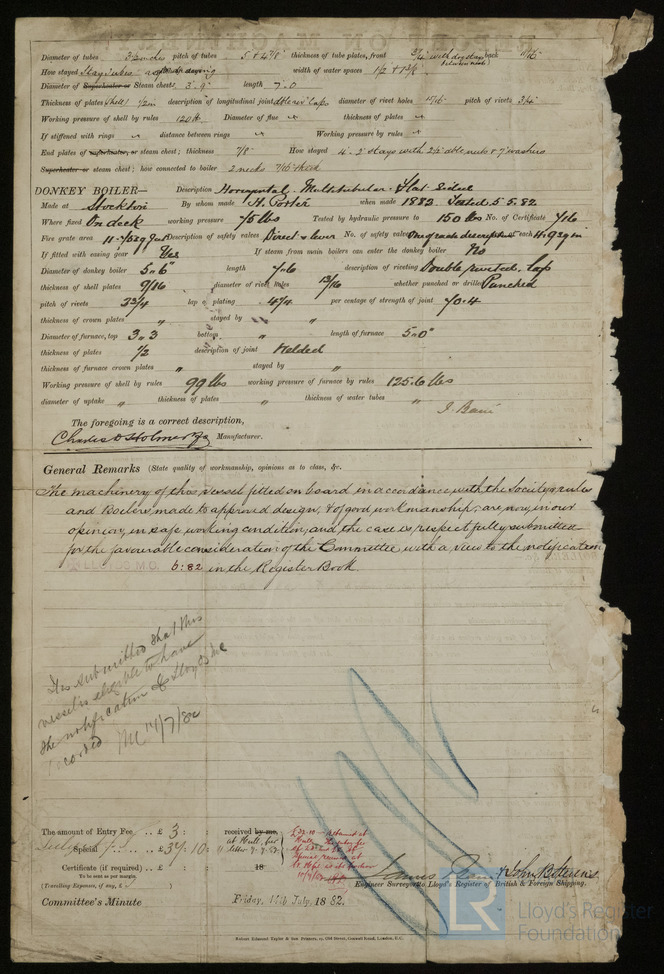 Diameter of tubes 3½ inches pitch of tubes 5 + 4⅞ thickness of tube plates, front ¾ with back
How stayed Stay tubes width of water spaces 1½ + 1⅜
Diameter of Superheater or Steam chest 3.9" length 7.0
Thickness of plates Shell ½in description of longitudinal joint diameter of rivet holes pitch of rivets 3¼
Working pressure of shell by rules 120 lb Diameter of flue " thickness of plates "
If stiffened with rings " distance between rings " Working pressure by rules "
End plates of superheater, or steam chest; thickness 7/8 How stayed 4 - 2" stays with 2½ dble nuts & 7" washers
Superheater or steam chest; how connected to boiler 2 necks 7/16 thick
DONKEY BOILER— Description Horizontal, Multitubular. Flat Sided
Made at Stockton By whom made H. Porter when made 1882. Tested 5.5.82
Where fixed On deck working pressure 75 lbs Tested by hydraulic pressure to 150 lbs No. of Certificate 716
Fire grate area 11.75 sq feet Description of safety valves Direct & lever No. of safety valves One of each description area of each 4.9 sq in
If fitted with easing gear Yes If steam from main boilers can enter the donkey boiler No
Diameter of donkey boiler 5.6" length 7.6 description of riveting Double riveted, lap
thickness of shell plates 9/16 diameter of rivet holes 13/16 whether punched or drilled Punched
pitch of rivets 2¾ lap of plating 4¼ per centage of strength of joint 70.4
thickness of crown plates " stayed by "
Diameter of furnace, top 3.3 bottom " length of furnace 5.0"
thickness of plates ½ description of joint Welded
thickness of furnace crown plates " stayed by "
Working pressure of shell by rules 99 lbs working pressure of furnace by rules 125.6 lbs
diameter of uptake " thickness of plates " thickness of water tubes "
J. Bain
The foregoing is a correct description,
Charles D Holmes & Co Manufacturer.
General Remarks (State quality of workmanship, opinions as to class, &c.
The machinery of this vessel fitted on board in accordance with the Society's rules
and Boilers made to approved design, & of good workmanship; are now in our
opinion, in safe working condition, and the case is respectfully submitted
for the favourable consideration of the Committee with a view to the notification
LLOYDS M.C. 6:82 in the Register Book.
It is submitted that this
vessel is eligible to have
the notification of Lloyd's MC
recorded 14/7/82
The amount of Entry Fee .. £ 3 : : received by me,
Special .. £ 34 : 10 : at Hull, per letter
Certificate (if required) .. £ : : 18
To be sent as per margin.
(Travelling Expenses, if any, £ )
James Bain & John B Stevens
Engineer Surveyor to Lloyd's Register of British & Foreign Shipping.
Committee's Minute Friday, 14th July, 1882.
LR Lloyd's Register
Foundation